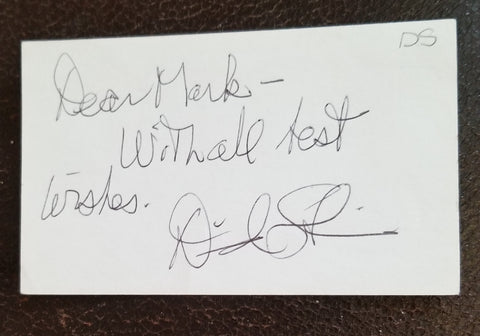 DS
Dear Mark –
With all best
wishes.